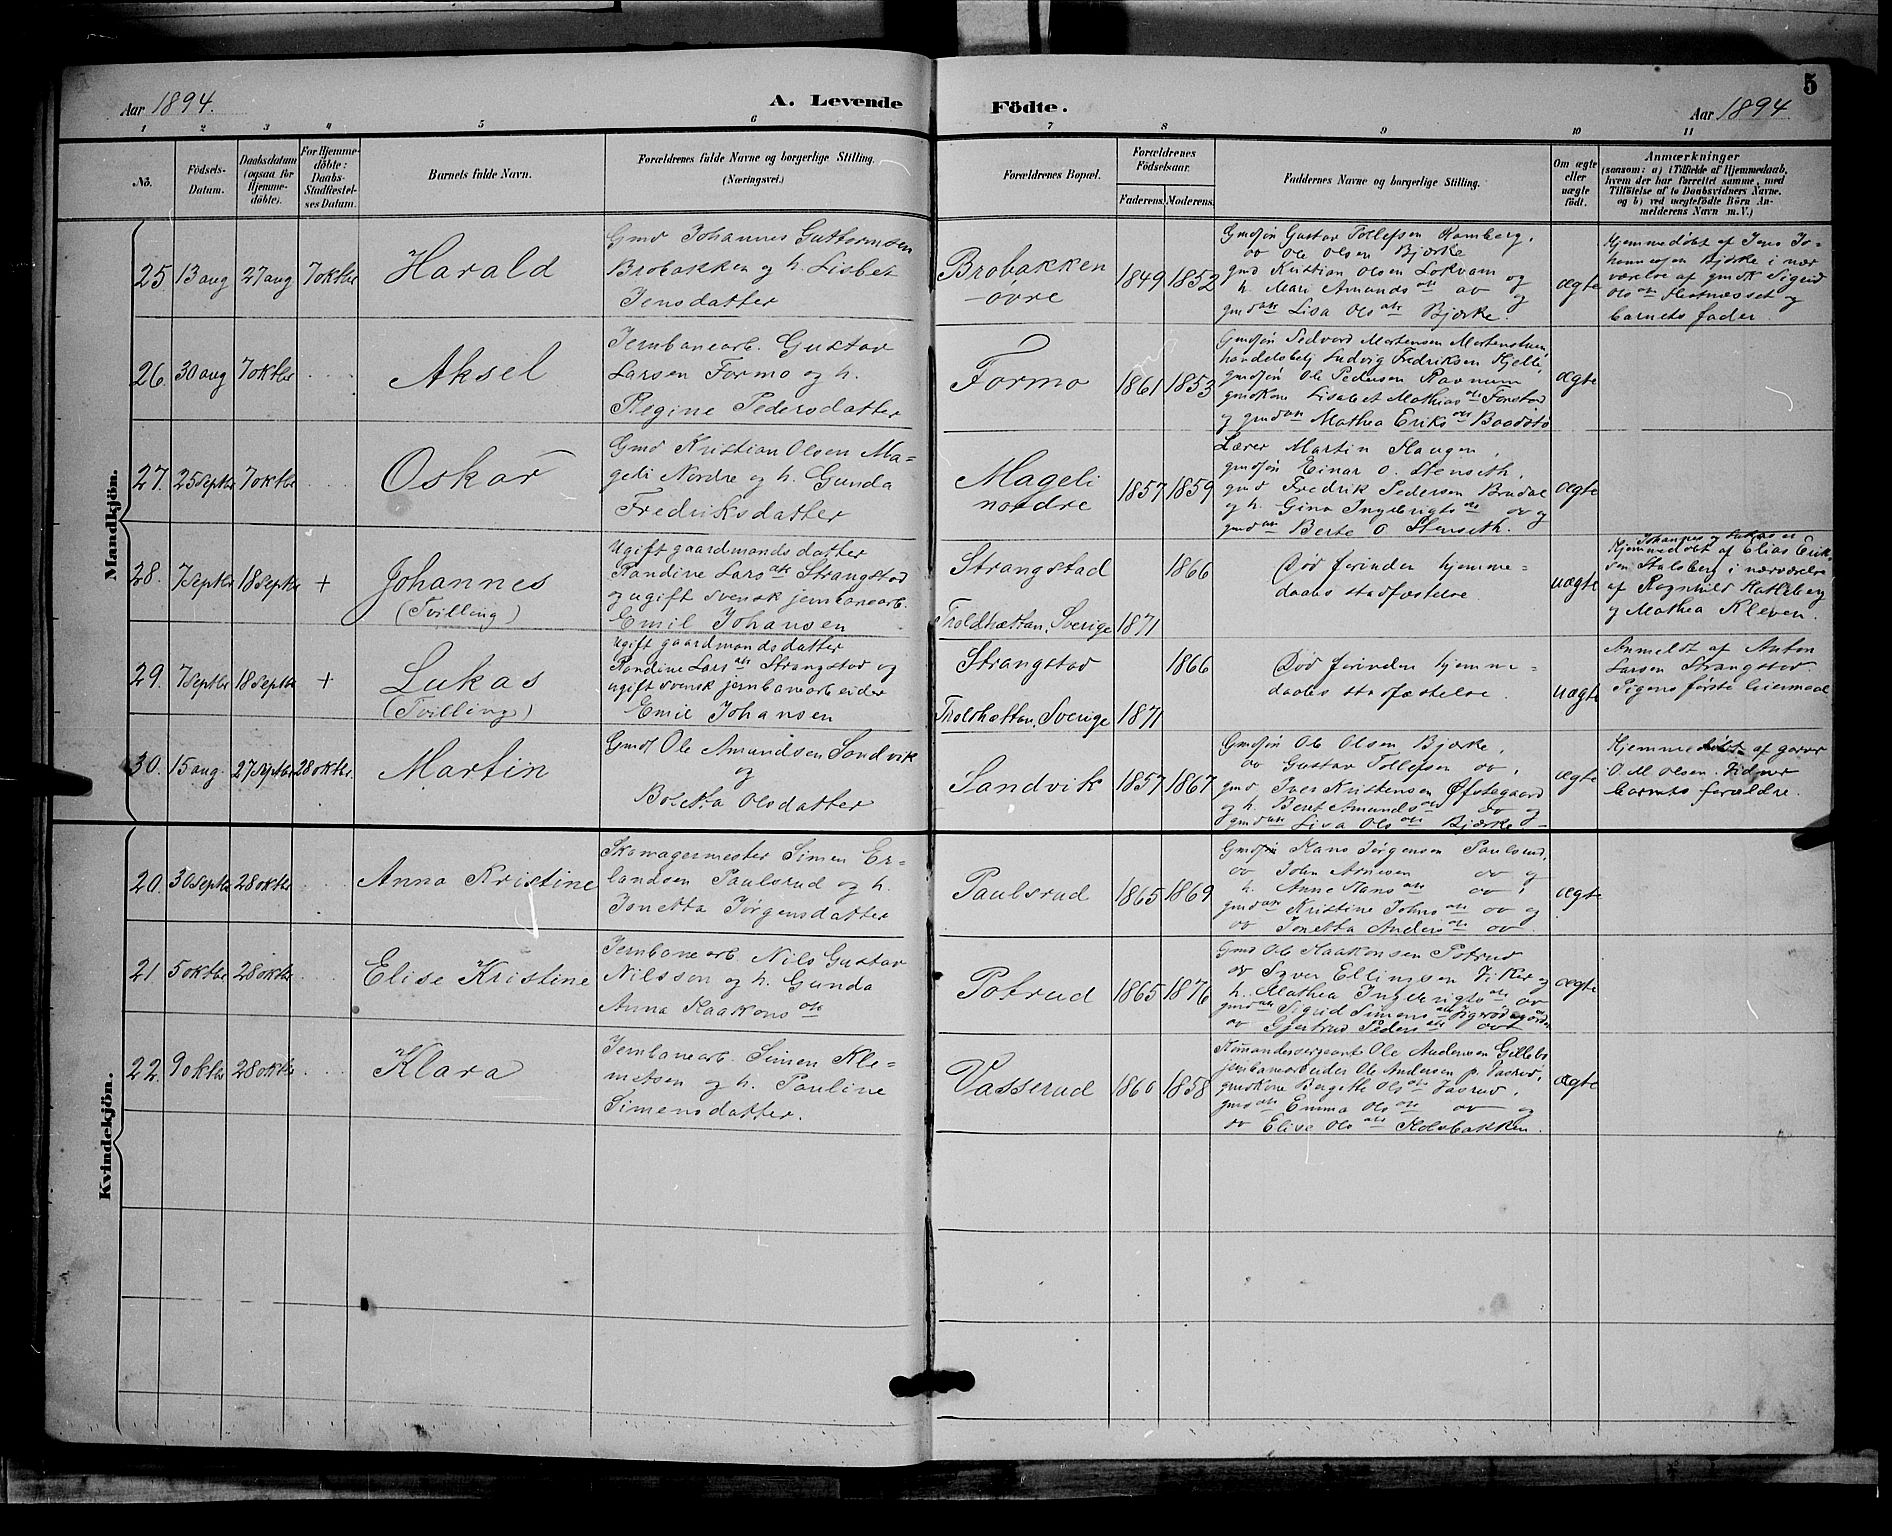 5
Aar 1894.
A. Levende
Födte.
Aar 1894
1 2 3 4 5 6 7 8 9 10 11
No.
Födsels-
Datum.
Daabsdatum
(ogsaa for
Hjemme-
döbte).
For Hjemme-
döbte:
Daabs-
Stadfæstel-
ses Datum.
Barnets fulde Navn.
Forældrenes fulde Navne og borgerlige Stilling.
(Næringsvei.)
Forældrenes Bopæl.
Forældrenes
Födselsaar.
Faderens. Moderens.
Faddernes Navne og borgerlige Stilling.
Om ægte
eller
uægte
født.
Anmærkninger
(saasom: a) i Tilfælde af Hjemmedaab,
hvem der har forrettet samme, med
Tilföielse af to Daabsvidners Navne,
og b) ved uægtefödte Börn An-
melderens Navn m. V.)
Mandkjön.
25. 13 aug 27 aug 7 oktbr Harald
Gmd Johannes Guttormsen
Brobakken og h. Lisbet
Jensdatter
Brobakken
øvre
1849 1852
Gmdsøn Gustav Tollefsen Hamberg,
do Ole Olsen Bjørke
gmd Kristian Olsen Løkvam og
h. Mari Amundsdtr do og
gmddtr Lisa Olsdtr Bjørke.
ægte
Hjemmedøbt af Jens Jo-
hannesen Bjørke i nær
værelse af gmdk Sigrid
Olsdtr og
barnets fader.
26. 30 aug 7 oktbr Aksel
Jernbanearb. Gustav
Larsen Formo og h.
Regine Pedersdatter
Formo
1861 1853
Gmdsøn Sedvard Mortensen Mortenstuen,
handelsbetj Ludvig Fredriksen Kjelle,
gmdsøn Ole Pedersen Ravnum
gmdkone Lisabet Mathiasdtr Fonstad
og gmddtr Mathea Eriksdtr
ægte
27. 25 septbr 7 oktbr Oskar
Gmd Kristian Olsen Ma-
geli Nordre og h. Gunda
Fredriksdatter
Mageli
nordre
1857 1859
Lærer Martin Haugen,
gmdsøn Einar O. Stenseth,
gmd Fredrik Pedersen Brudal
og h. Gina Ingebrigtsdtr do og
gmddtr Berte O Stenseth.
ægte
28. 7 septbr 18 septbr + Johannes
(Tvilling)
Ugift gaardmandsdatter
Randine Larsdtr Strangstad
og ugift svensk jernbanearb.
Emil Johansen
Strangstad 1866
Troldhættan, Sverige 1871
Død forinden hjemme-
daabs stadfæstelse.
uægte
Johannes og Lukas er
Hjemmedøbt af Elias Erik-
sen Stalsberg i nærværelse
af Ragnhild Hatleberg
og Mathea Kleven.
29. 7 septbr 18 septbr + Lukas
(Tvilling)
Ugift gaardmandsdatter
Randine Larsdtr Strangstad og
ugift svensk jernbanearbeider
Emil Johansen
Strangstad 1866
Troldhættan, Sverige 1871
Død forinden hjemme-
daabs stadfæstelse.
uægte
Anmeldt af Anton
Larsen Strangstad.
Pigens første leiermaal
30. 15 aug. 27 septbr 28 oktbr. Martin
Gmds Ole Amundsen Sandvik
og
Boletta Olsdatter
Sandvik 1857 1867
Gmdsøn Ole Olsen Bjørke,
do Gustav Tollefsen do,
gmd Iver Kristensen Øfstegaard
og h. Berit Amundsdtr do og
gmddtr Lisa Olsdtr Bjørke
ægte
Hjemmedøbt af garver
O. M. Olsen. Vidner
barnets forældre.
Kvindekjön.
20. 30 septbr 28 oktbr Anna Kristine
Skomagermester Simen Er-
landsen Paulsrud og h.
Jonetta Jørgensdatter
Paulsrud 1865 1869
Gmdsøn Hans Jørgensen Paulsrud,
do John Arnesen do og
h. Anne Hansdtr do,
gmddtr Kristine Johnsdtr do og
do Jonetta Andersdtr do.
ægte
21. 5 oktbr 28 oktbr Elise Kristine
Jernbanearb. Nils Gustav
Nilsson og h. Gunda
Anna Haakonsdtr
Potrud 1865 1876
Gmd Ole Haakonsen Potrud
do Syver Ellingsen Viker og
h. Mathea Ingebrigtsdtr do
gmddtr Sigrid Simensdtr
do Gjertrud Pedersdtr
ægte
22. 9 oktbr 28 oktbr Klara
Jernbanearb. Simen Kle-
metsen og h. Pauline
Simensdatter.
Vasserud 1860 1858
Kommandersergeant Ole Andersen Gillebo
jernbanearbeider Ole Andersen p. Vasrud,
gmdkone Bergithe Olsdtr Vasrud,
gmddtr Emma Olsdtr do og
do Elise Olsdtr Holebakken.
ægte